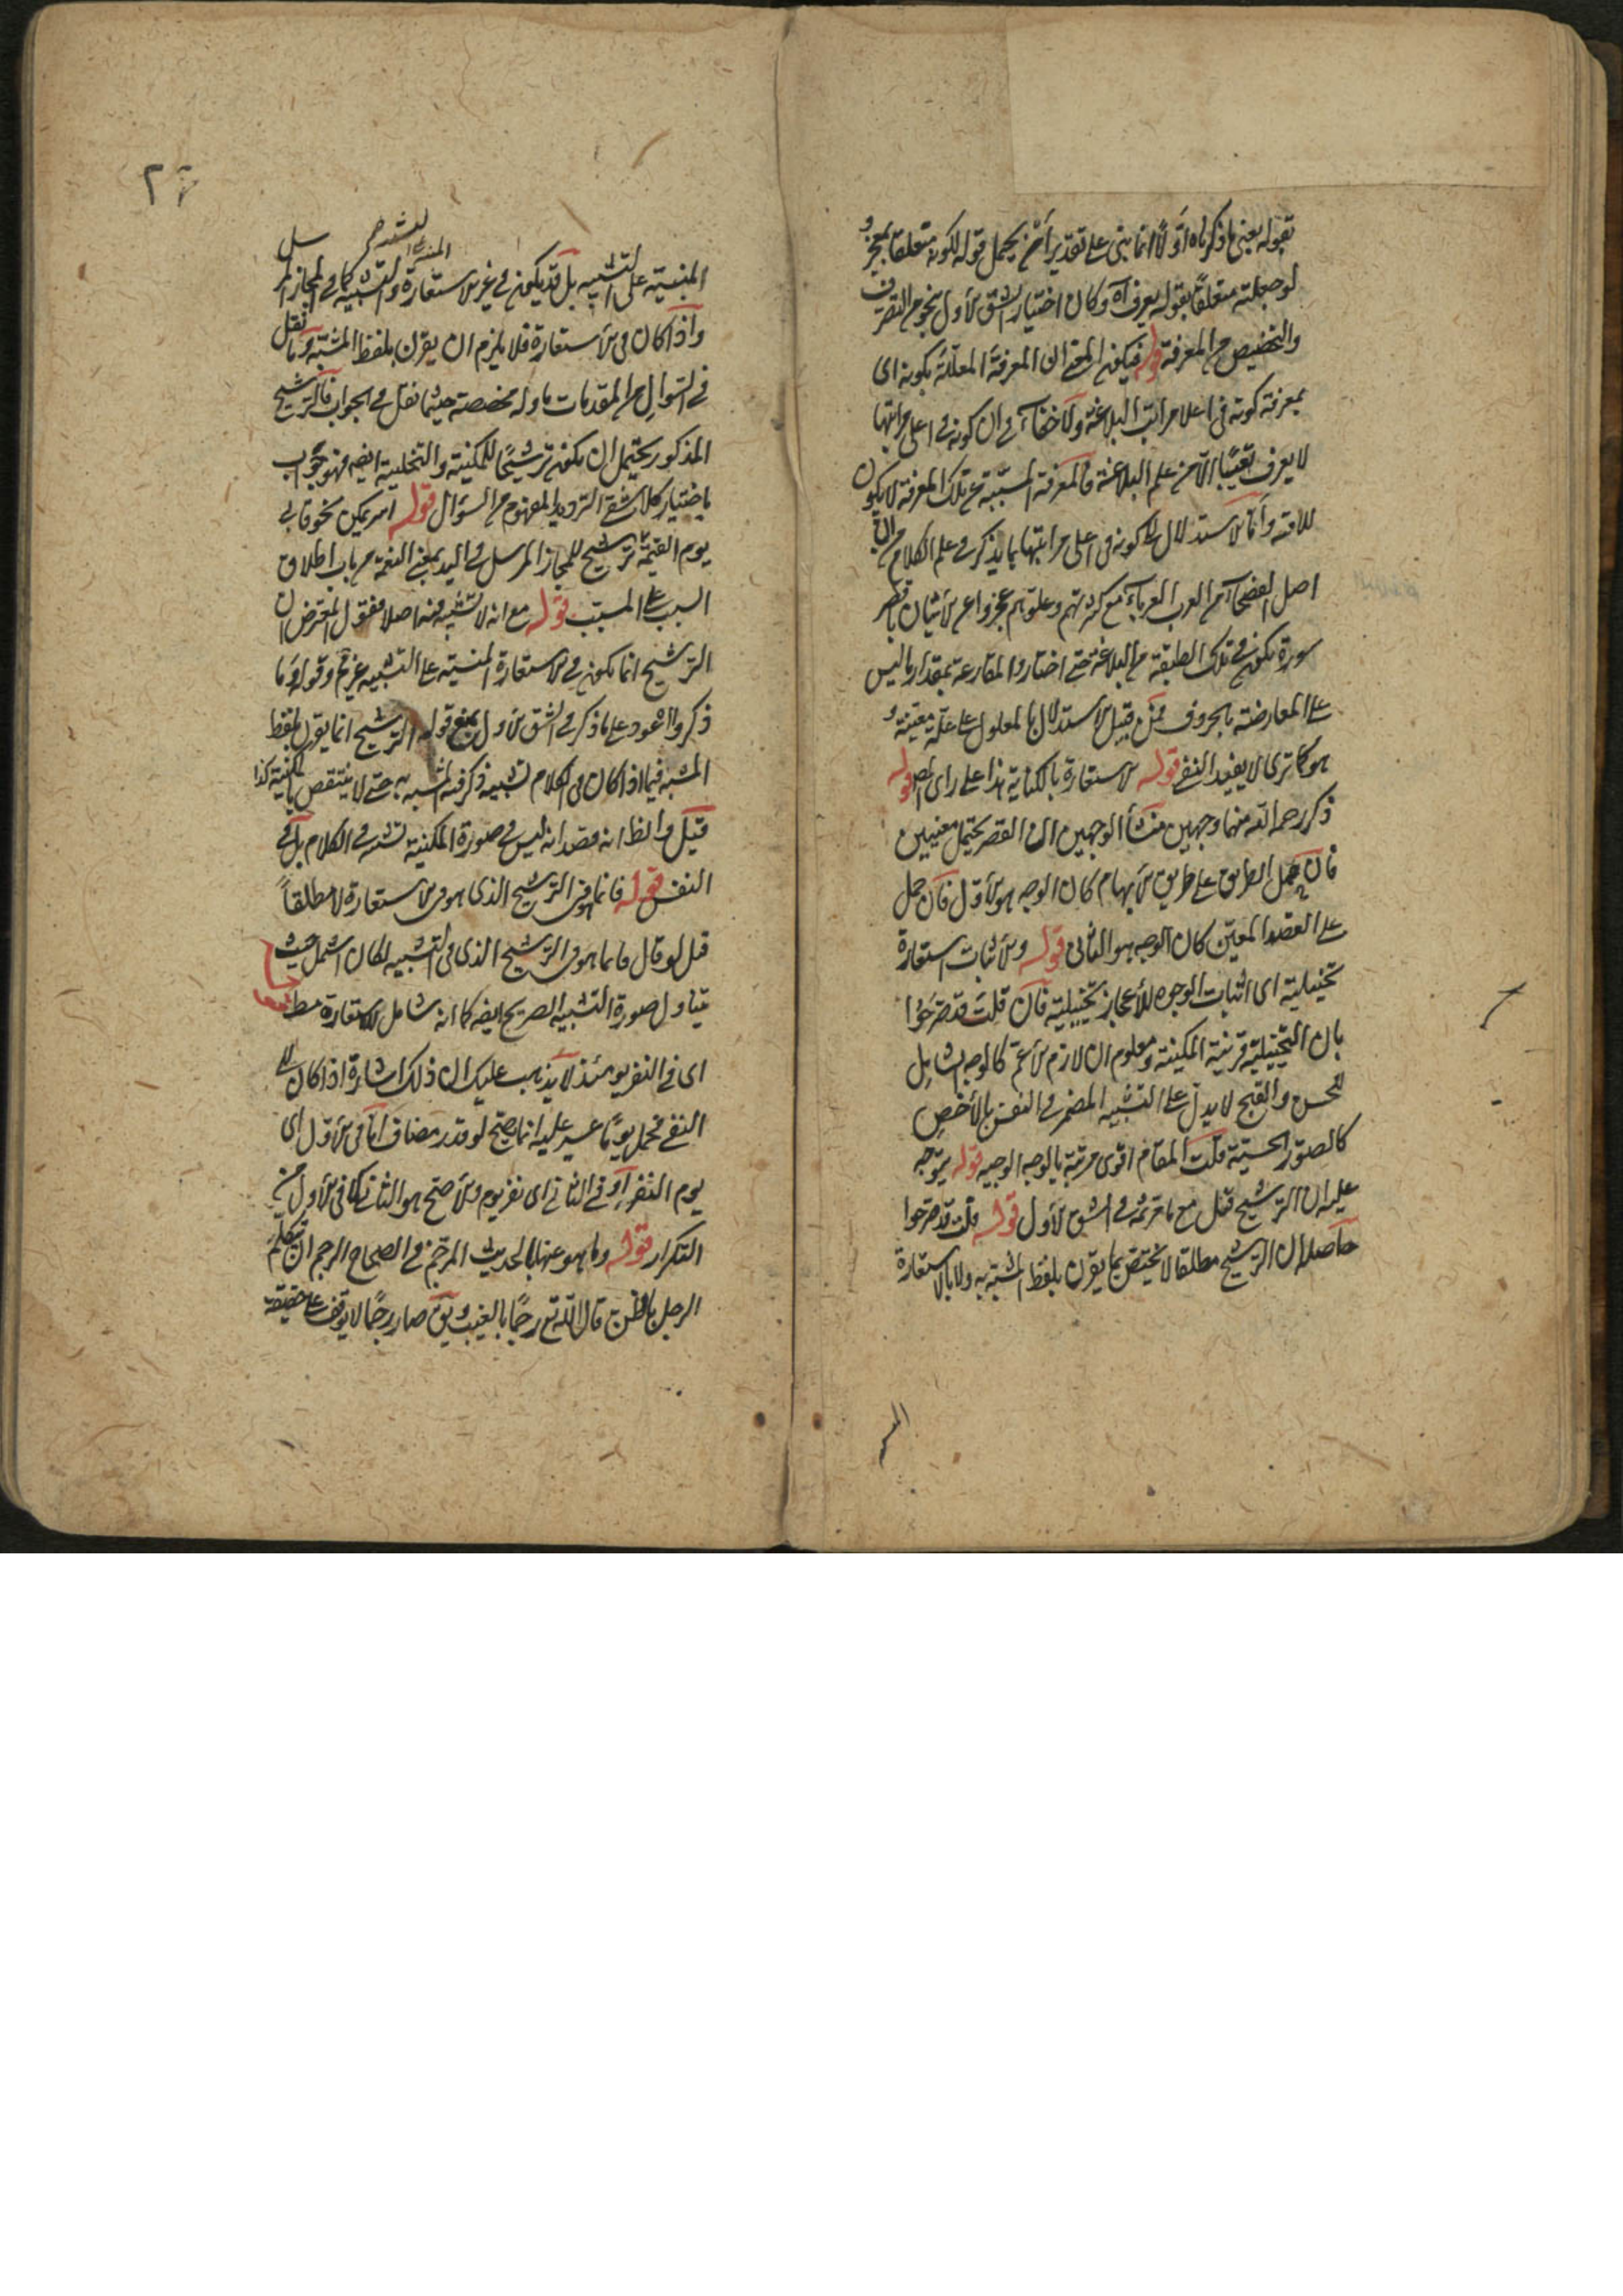 بقوله يعنى ما ذكرناه اولا انما يبنى على تقدير ان يحمل قوله لكونه متعلقا بمعجز و
لو جعلته متعلقا بقوله يعرف آه وكان اختيار الشق الأول بنحو من التصرف
والتخصيص من المعرفة قوله فيكون المعنى ان المعرفة المعللة بكونه اى
بمعرفة كونه فى اعلا مراتب البلاغة ولا خفاء فى ان كونه فى اعلى مراتبها
لا يعرف تعيينا الا من علم البلاغة فالمعرفة المسببة عن تلك المعرفة لا يكون
للامنه واما الاستدلال على كونه فى اعلى مراتبها بما يذكر فى علم الكلام من ان
اصل الفصحاء من العرب العرباء مع كثرتهم وعلو هم عجزوا عن الأتيان باقصر
سورة يكون فى تلك الطبقة من البلاغة حتى اختاروا المقارعة بمقدار ما ليس
على المعارضة بالحروف فمن قبيل الاستدلال بالمعلول على علة معينة و
هو كما ترى لا يفيد النفى قوله الاستعارة بالكناية هذا على راى المص قوله
ذكر رحمه الله منهما وجهين منشأ الوجهين ان القصر يحتمل معنيين
فان حمل الطريق على طريق الأبهام كان الوجه هو الأول فان حمل
على القصد المعين كان الوجه هو الثانى قوله والأثبات استعارة
تخييلية اى اثبات الوجوه للأعجاز تخييلية فان قلت قد صرحوا
بان التخييلية قرينة المكنية ومعلوم ان لازم الأعم كالوجه الشامل
للحسن والقبح لا يدل على التشبيه المضمر فى النفس بالأخص
كالصور الحسنة قلت المقام اقوى مرتبة بالوجه الوجيه قوله يتوجه
عليه ان الترشيح قيل مع ما قرنه فى الشق الأول قوله قلت قد صرحوا
حاصله ان الترشيح مطلقا لا يختص بما يقرن بلفظ المشبه به ولا بالاستعارة
المبنية على التشبيه بل قد يكون فى غير الاستعارة والتشبيه كما فى المجاز المرسل
واذا كان فى الاستعارة فلا يلزم ان يقرن بلفظ المشبه وما نقل
فى السوال من المقدمات ماوله مخصصة حيثما نقل فى الجواب فالترشيح
المذكور يحتمل ان يكون ترشيحا للمكنية والتخييلية ايضا فهو جواب
باختيار كلا شقى الترديد المفهوم من السوال قوله
يوم القيمة ترشيح للمجاز المرسل فى اليد بمعنى النعمة من باب اطلاق
السبب على المسبب قوله مع انه لا تشبيه فيه اصلا فقول المعترض ان
الترشيح انما يكون فى الاستعارة المبنية على التشبيه غير تم وقوله وما
ذكروا عود على ما ذكر فى الشق الأول بمنع قوله الترشيح انما يقرن بلفظ
المشبه فيما اذا كان فى الكلام تشبيه ذكر فيه المشبه به حتى لا ينتقض بالمكنية كذا
قيل والظ انه قصد انه ليس فى صورة المكنية تشبيه فى الكلام بل فى
النفس قوله فانما هو فى الترشيح الذى هو فى الاستعارة لا مطلقا
قيل لو قال فانما هو فى الترشيح الذى فى التشبيه لكان اشمل حيث
يتناول صورة التشبيه الصريح ايضا كما انه شامل للاستعارة مط
اى فى النفر يومئذ لا يذهب عليك ان ذلك اشارة اذا كان الى
النفى فحمل يوما عسير عليه انما يصح لو قدر مضاف اما فى الأول اى
يوم النفر او فى الثانى اى نفر يوم والأصح هو الثانى كما فى الأول من
التكرار قوله وما هو عنها بالحديث المرجم فى الصحاح الرجم ان يتكلم
الرجل بالظن قال الله تع رجما بالغيب يق صار رجما لا يوقف على حقيقته